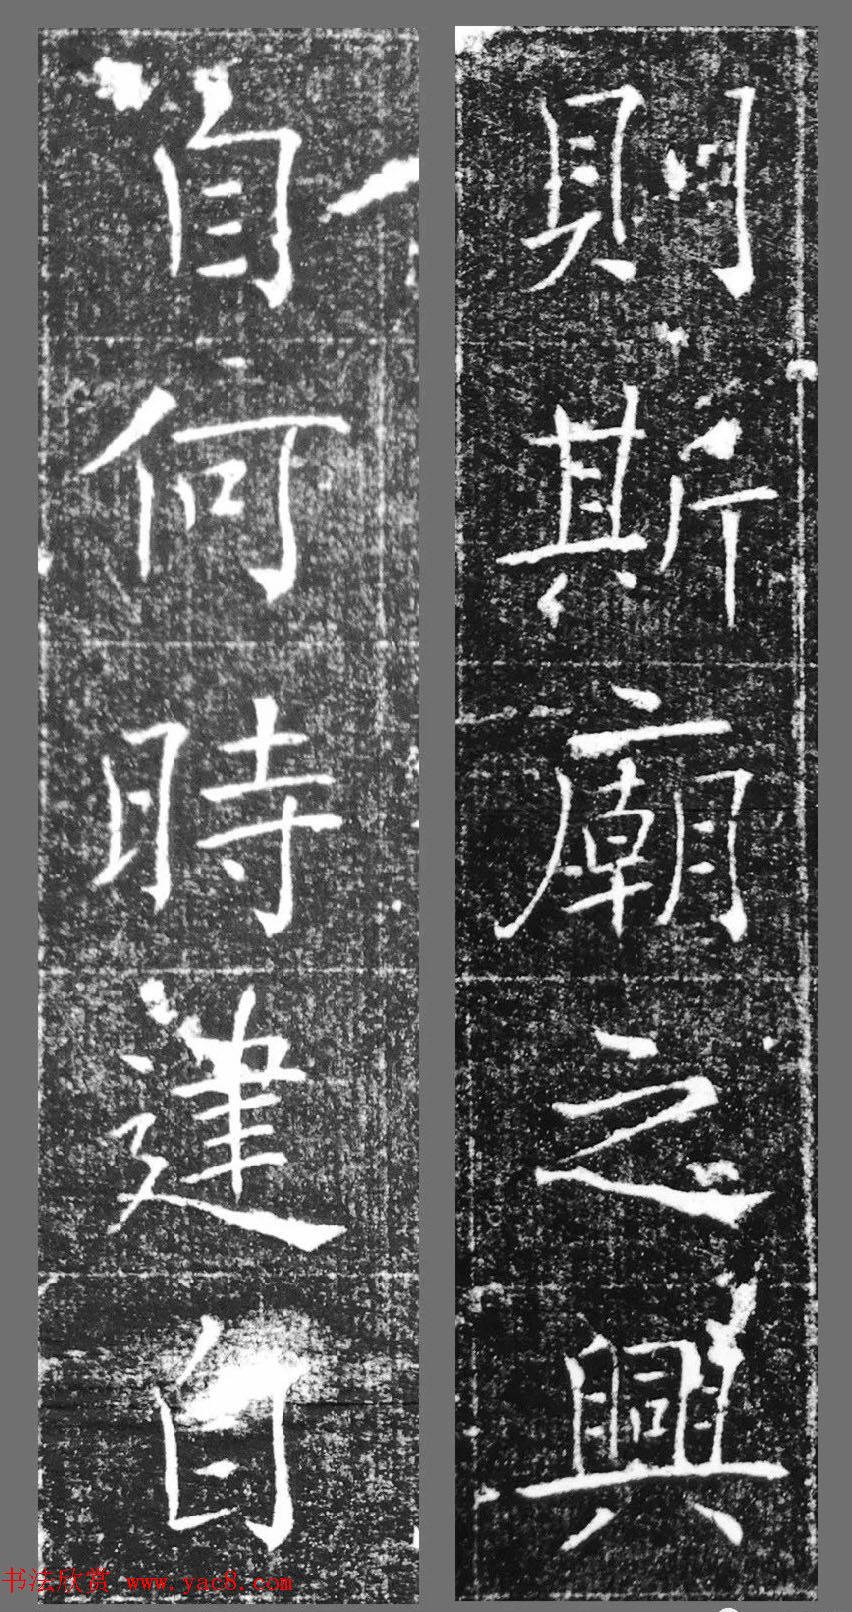 則斯廟之興
自何時建自
书法欣赏 www.yac8.com